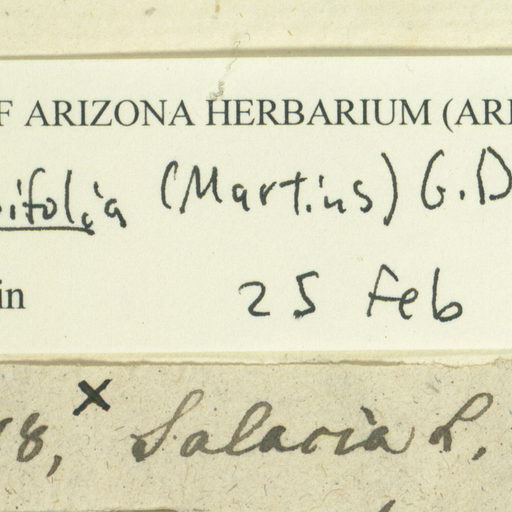 F ARIZONA HERBARIUM (ARI
ifolia (Martins) G.D
in 25 Feb
8, x Salacia L.